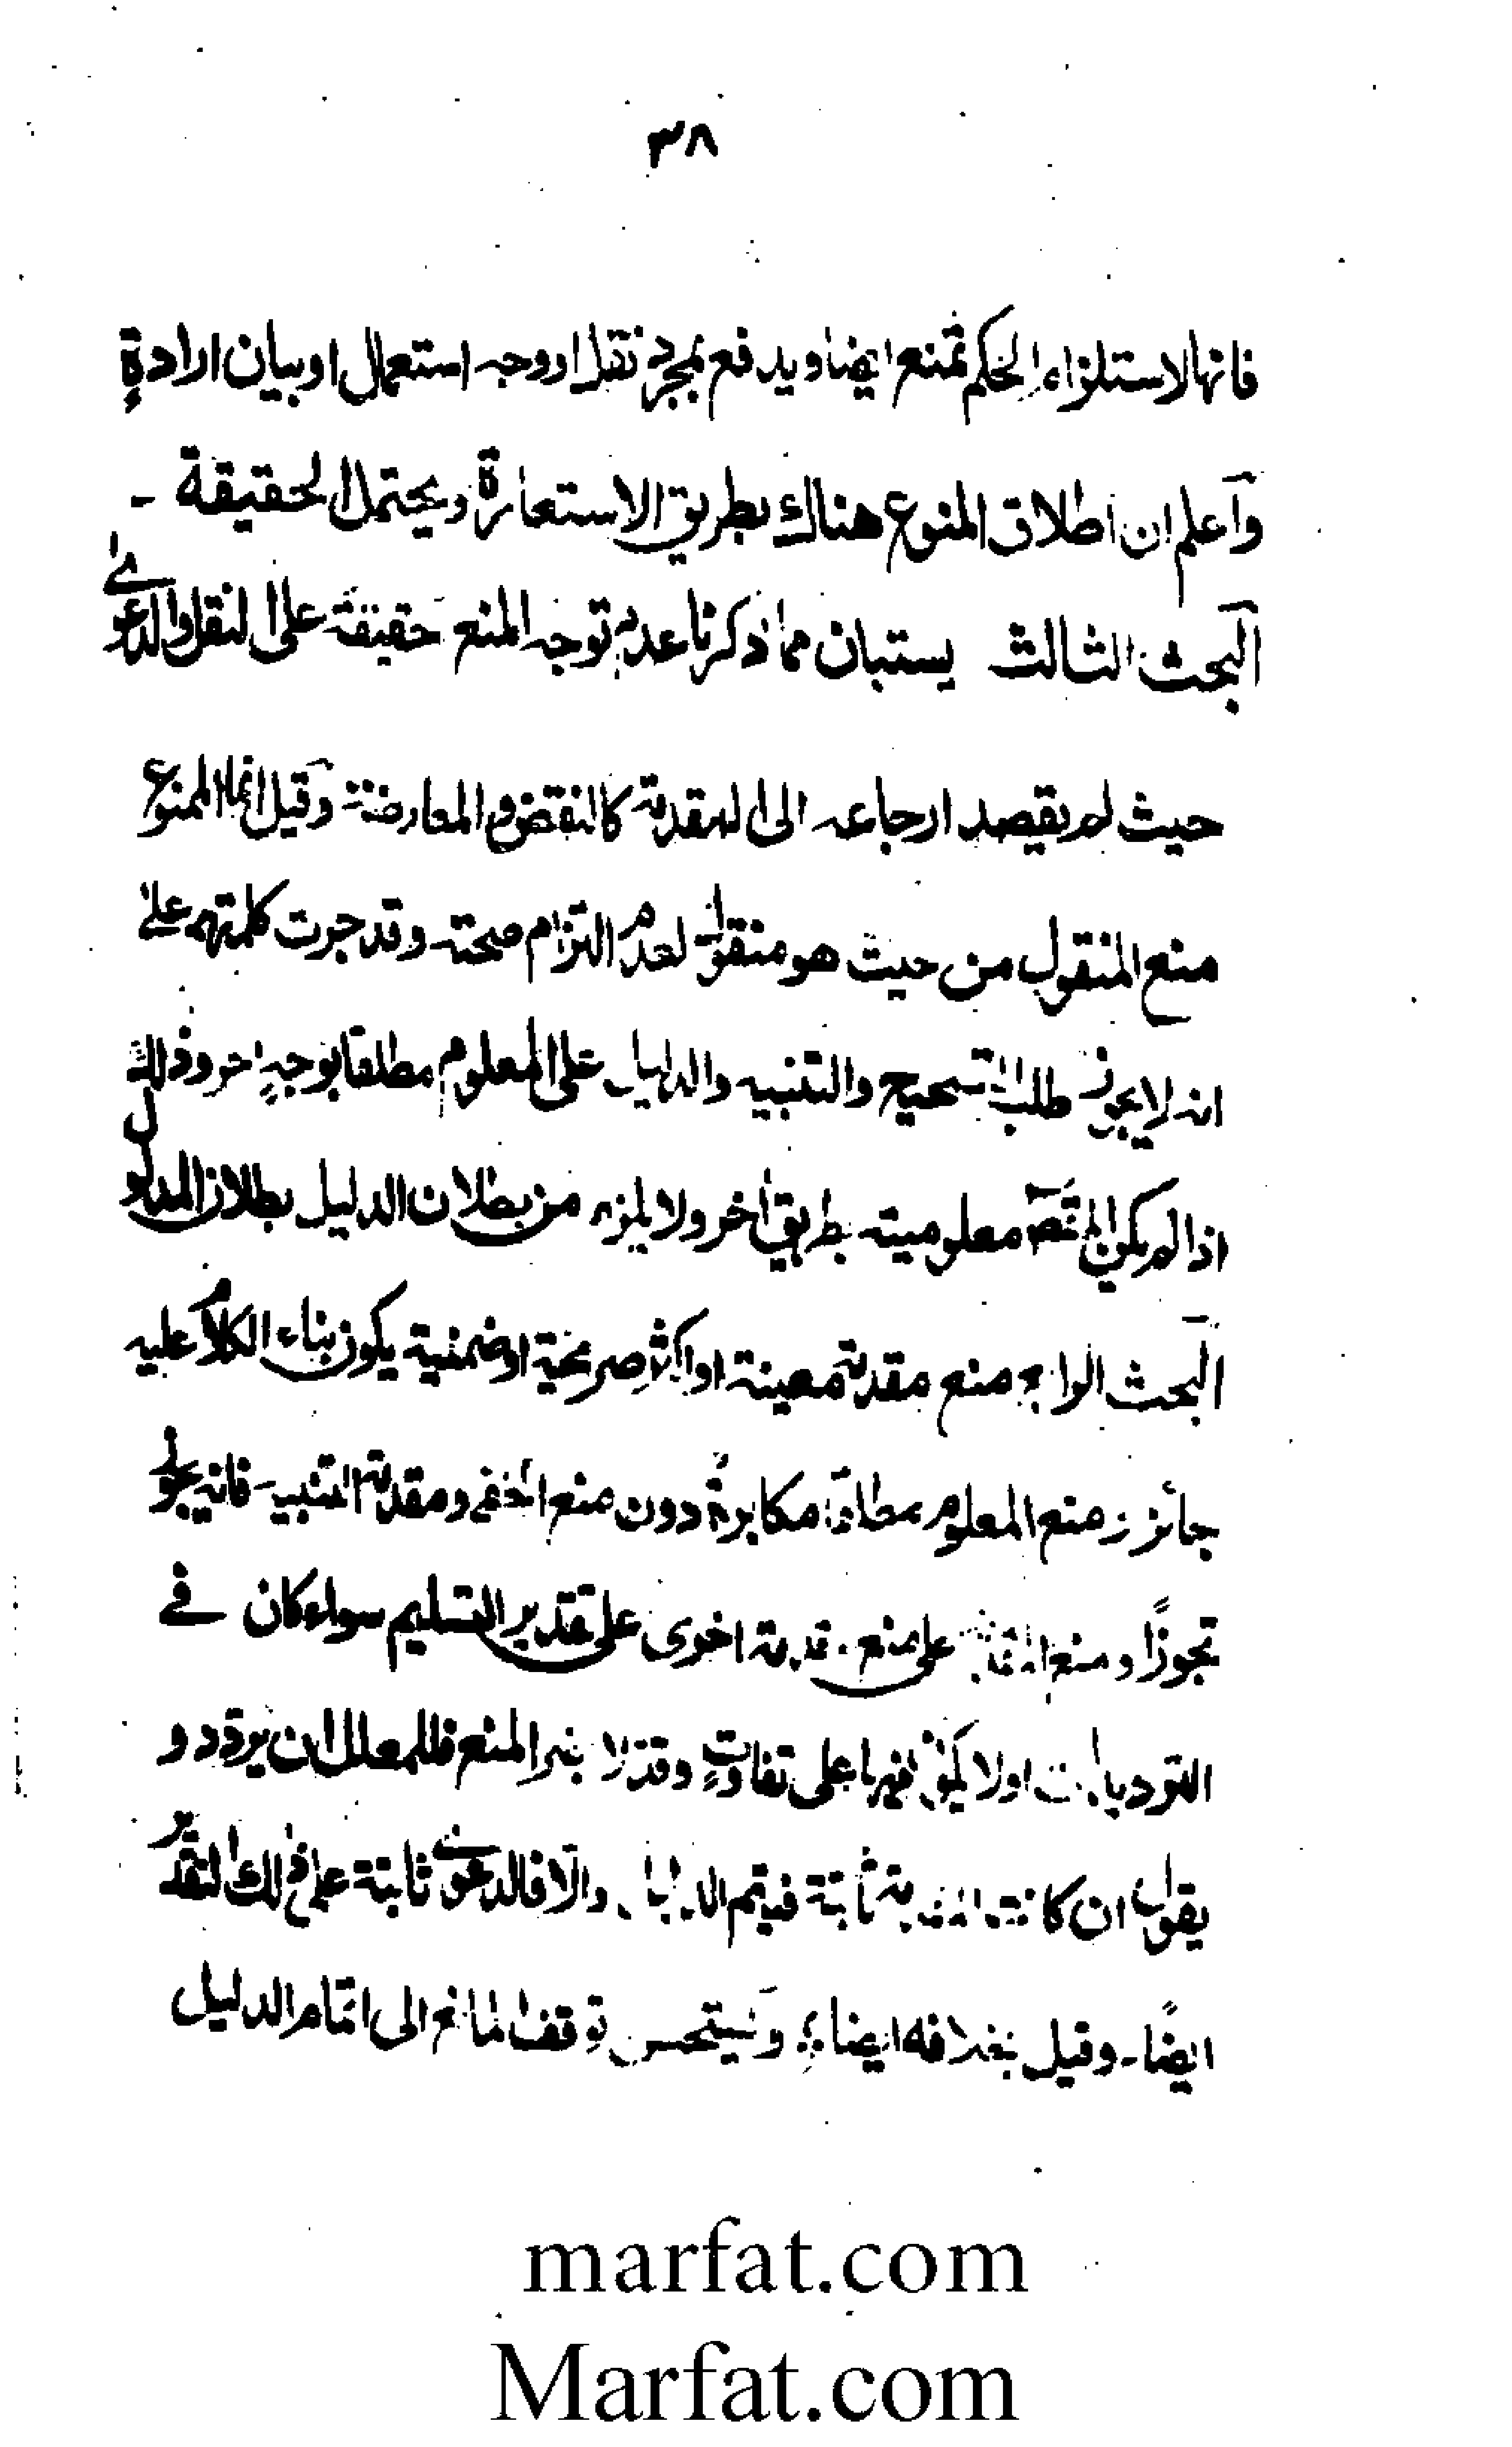 ٣٨
فانها لاستلزاء الحكم تمنع ايضا ويدفع بمجرد نقل او وجه استعمال او بيان ارادةٍ
وآعلم ان اطلاق المنوع هناك بطريق الاستعارة ويحتمل الحقيقة -
آلبحث الثالث يستبان مما ذكرنا عدم توجه المنع حقيقة على النقل والدعوىٰ
حيث لم يقصد ارجاعه الى المقدمة كالنقض والمعارضة وقيل انما الممنوع
منع المنقول من حيث هو منقول لعدم التزام صحته وقد جرت كلمتهم علىٰ
انه لا يجوز طلب التصحيح والتنبيه والدليل على المعلوم مطلقا بوجهٍ اخر وذلك
اذا لم يكن المقصٓ معلوميته بطريق اٰخر ولا يلزم من بطلان الدليل بطلان المدلول
آلبحث الرابع منع مقدمة معينة او اكثر صريحية او ضمنية يكون بناء الكلام عليه
جائز ومنع المعلوم مطلقا مكابرةٌ دون منع الخفى ومقدمة التنبيه فانه يجوز
تجوزًا ومنع على منع مقدمة اخرى على تقدير التسليم سواء كان فى
الترديدات اولا يكون فيها على تفاوتٍ وقد لا يضر المنع فللمعلل ان يردد و
يقول ان كانت المقدمة ثابتة فيتم الدليل والّا فالدعوى ثابتة على ذلك التقدير
ايضًا - وقيل بخلافه ايضاء ويستحسن توقف المانع الى اتمام الدليل
marfat.com
Marfat.com